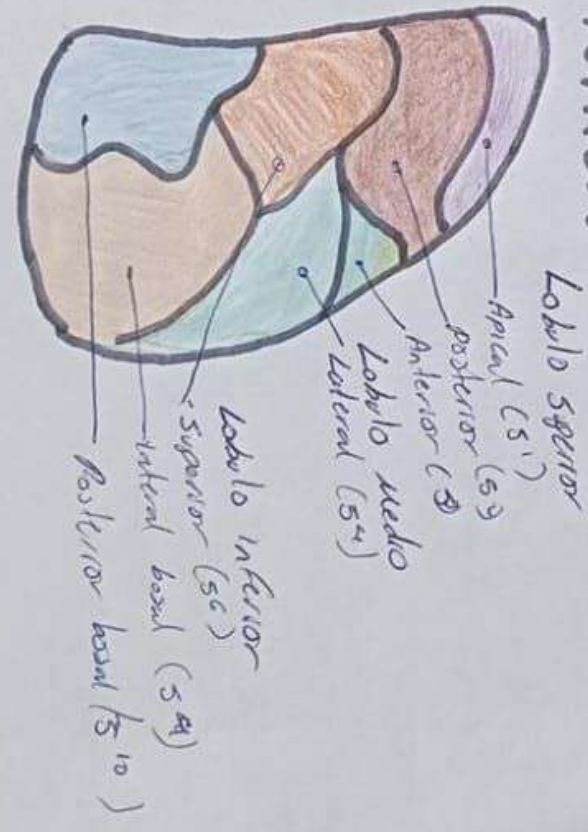 Lobulo Superior
Apical (S1)
Posterior (S2)
Anterior (S3)
Lobulo Medio
Lateral (S4)
Lobulo inferior
Superior (S6)
lateral basal (S9)
Posterior basal (S10)